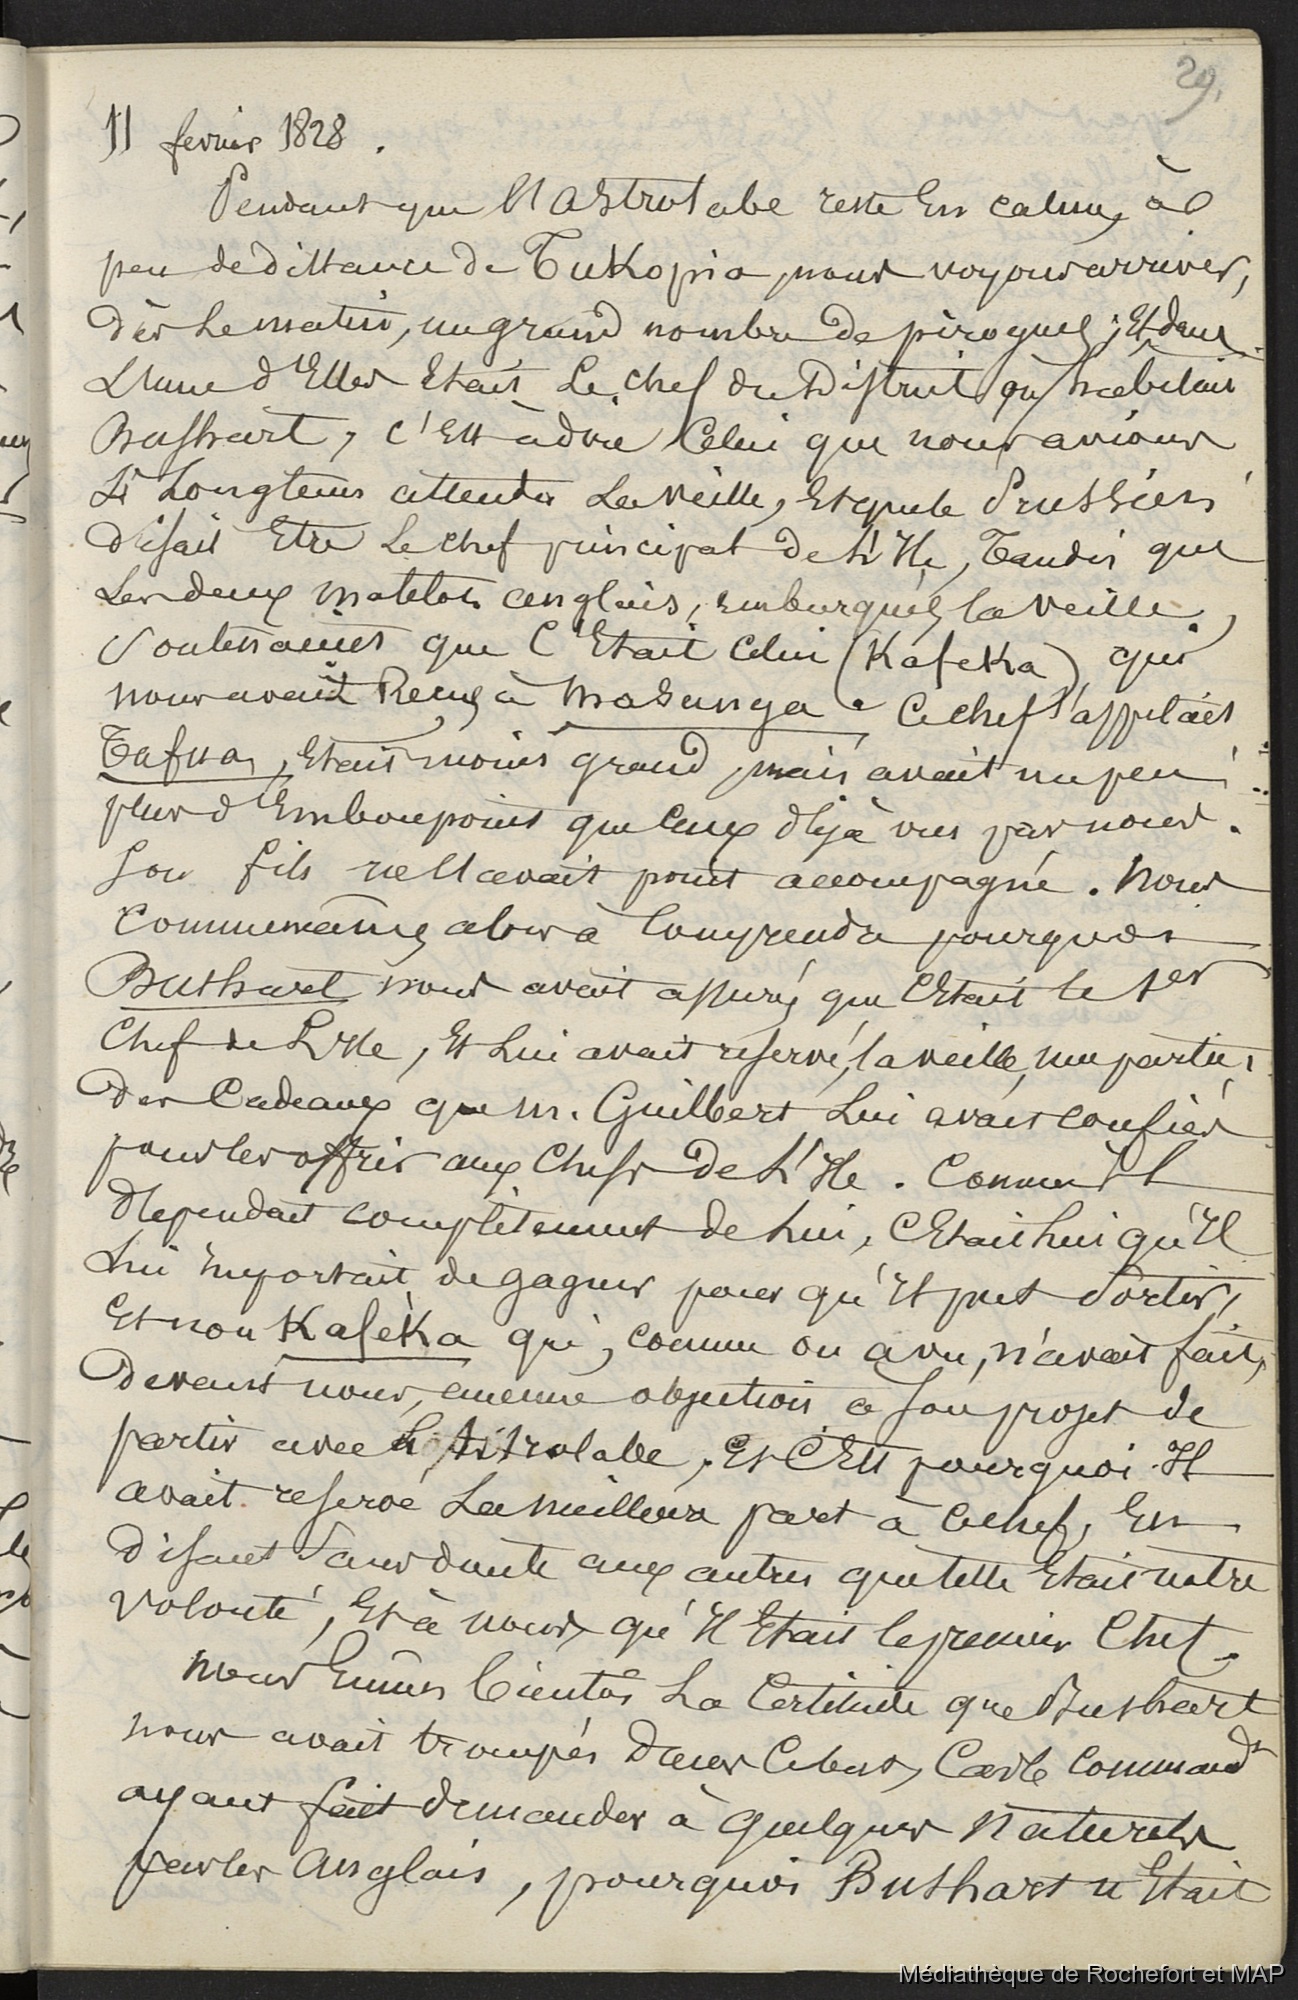 29.
11 fevrier 1828.
Pendant que l'Astrolabe reste En calme, à
peu de distance de Tukopia, nous voyons arriver,
dès Le matin, un grand nombre de pirogues; Et dans
L'une d'Elles Etait Le chef du District qu'habitait
Bushart, c'Est à dire Celui que nous avions
Si Longtems attendu La veille, Et que le Prussien
disait Etre Le chef principal de L'Ile, Tandis que
Les deux matelots anglais, embarqués la veille,
Soutenaient que C'Etait Celui (Kafeka) qui
nous avait Reçus à Masanga. Ce chef s'appelait
Tafua, Etait moins grand, mais avait un peu
plus d'Embonpoint que Ceux déjà vus par nous.
Son fils ne l'avait point accompagné. Nous
Commençâmes alors à Comprendre pourquoi
Bushart nous avait assurés que C'Etait le 1er
Chef de L'Ile, Et Lui avait reservé, la veille, une partie
des Cadeaux que M. Guilbert Lui avait confiés
pour les offrir aux Chefs de L'Ile. Comme Il
dépendait complètement de Lui, C'Etait Lui qu'Il
Lui Importait de gagner pour qu'Il put Sortir,
Et non Kafeka qui, comme on a vu, n'avait fait,
devant nous, aucune objection à Son projet de
partir avec L'Astrolabe, Et C'Est pourquoi Il
avait reservé La meilleure part à Ce chef, En
disant Sans doute aux autres que telle Etait notre
Volonté, Et à nous, qu'Il Etait le premier Chef.
Nous Eûmes bientôt La Certitude que Bushart
nous avait trompés Dans Ce but, Car le Commandt
ayant fait demander à quelques Naturels
parler Anglais, pourquoi Bushart n'Etait
Médiathèque de Rochefort et MAP